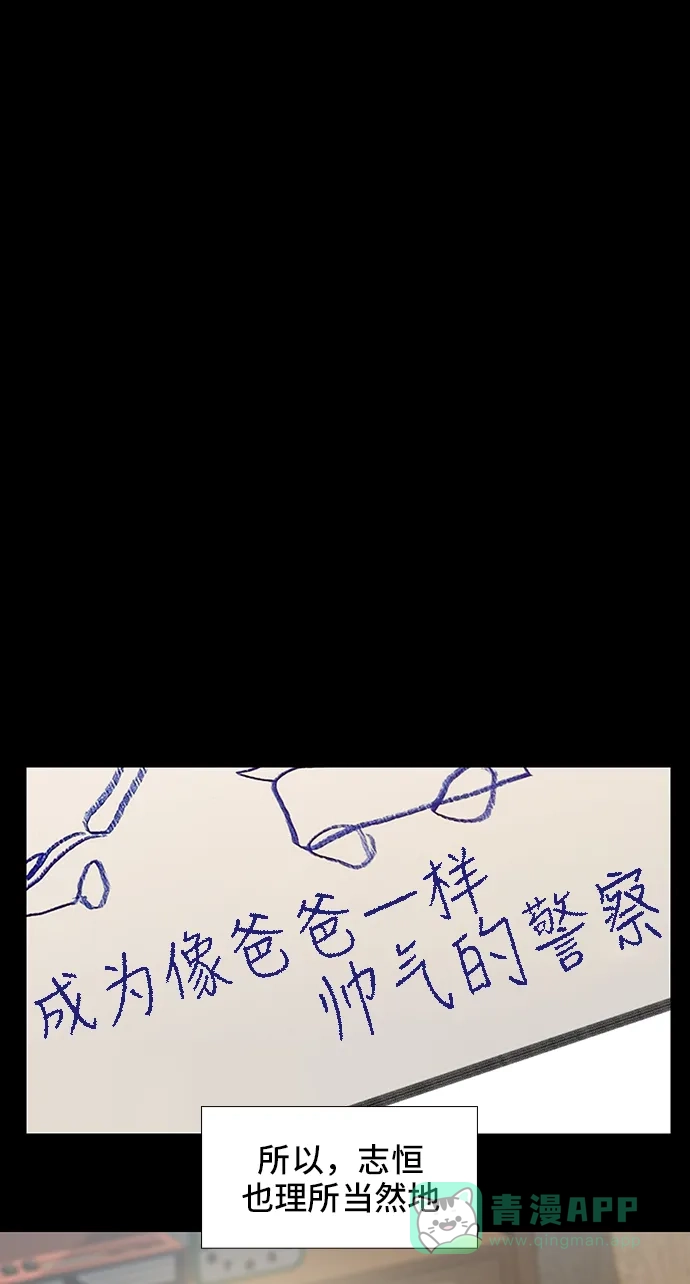 成为像爸爸一样
帅气的警察
所以，志恒
也理所当然地
青漫APP
www.qingman.app